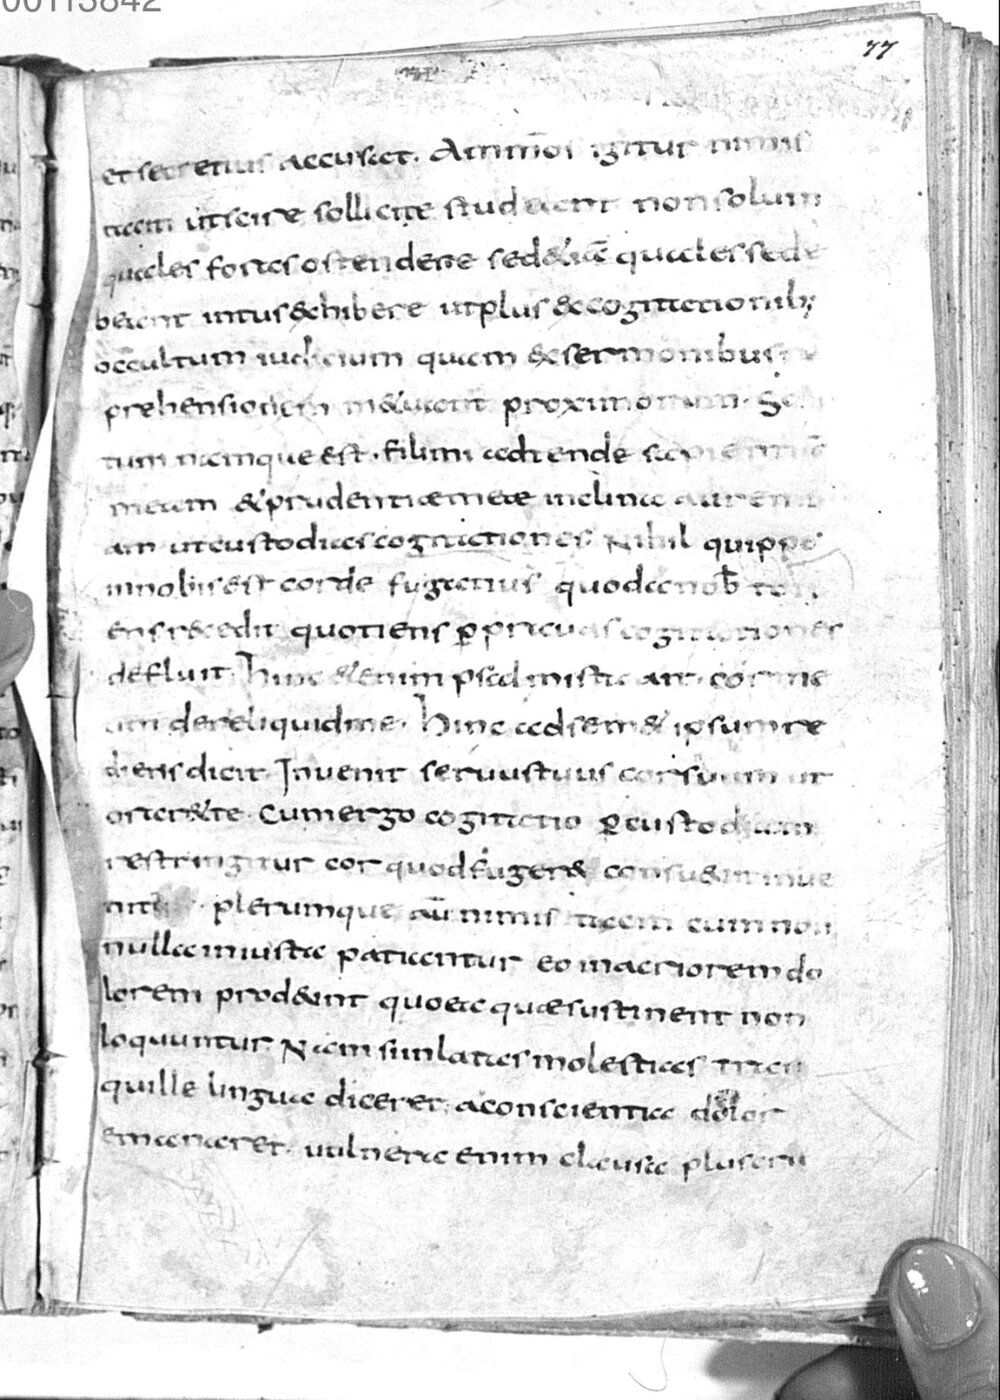 00113842
77
et secretius accuset. Ammoń igitur nimis
tacen ut scire sollicite studeant non solum
quales foras ostendere sed &iā quales se de
beant intus exhibere ut plus & cogitationib;
occultum iudicium quam & sermonibus
prehensionem m&uant proximorum. Sc
tum namque est. fili mi adtende sapientiā
meam & prudentiae meae inclina aurem
am ut custodias cogitationes. Nihil quippe
in nobis est corde fugatius quod a nob
ens recedit quotiens p prauas cogitationes
defluit. hinc &enim psalmista ait. cor me
um dereliquid me. hinc ad sem& ipsum re
diens dicit. Inuenit seruus tuus cor suum ut
oraret te. Cum ergo cogitatio p custodiam
restringitur cor quod fuger& consueuit inue
nitur plerumque aū nimis taceni cum non
nulla iniusta patiuntur eo in acriorem do
lorem prod&unt quo ea quae sustinent non
loquuntur. Nam si inlatas molestias tran
quille lingua diceret, a conscientia dolor
emanaret. uulnera enim clausa plus cru